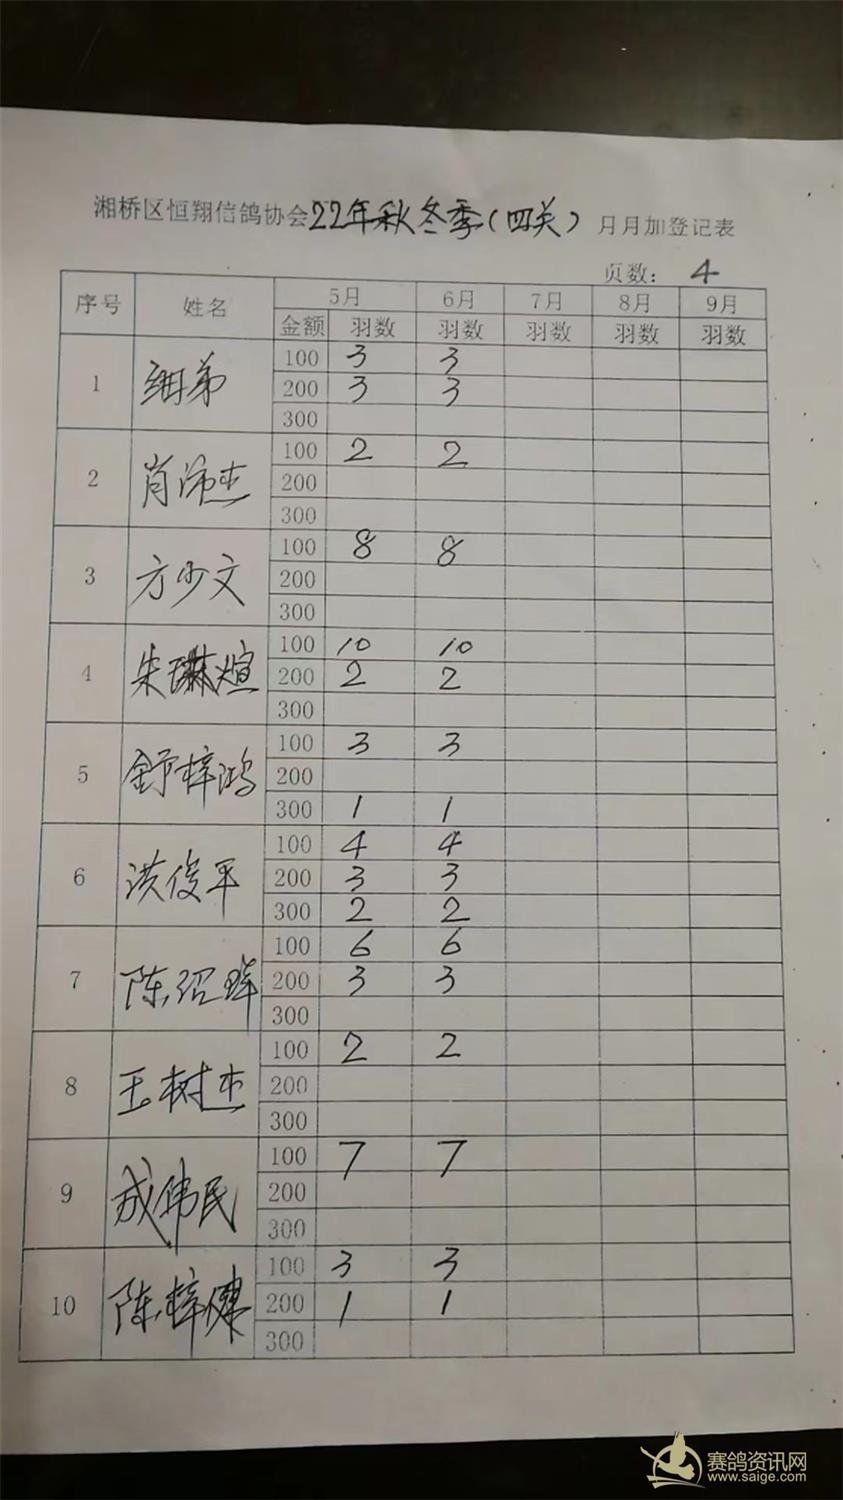 湘桥区恒翔信鸽协会22年秋冬季(四关)月月加登记表
页数: 4
序号 姓名 5月 6月 7月 8月 9月
金额 羽数 羽数 羽数 羽数 羽数
100 3 3
1 细弟 200 3 3
300
100 2 2
2 肖沛杰 200
300
100 8 8
3 方少文 200
300
100 10 10
4 朱琳煊 200 2 2
300
100 3 3
5 舒梓鸿 200
300 1 1
100 4 4
6 洪俊平 200 3 3
300 2 2
100 6 6
7 陈绍 200 3 3
300
100 2 2
8 王树杰 200
300
100 7 7
9 成伟民 200
300
100 3 3
10 陈梓健 200 1 1
300
赛鸽资讯网
www.saige.com